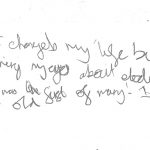 changed my life b
my eyes about
was the first of many. I
old